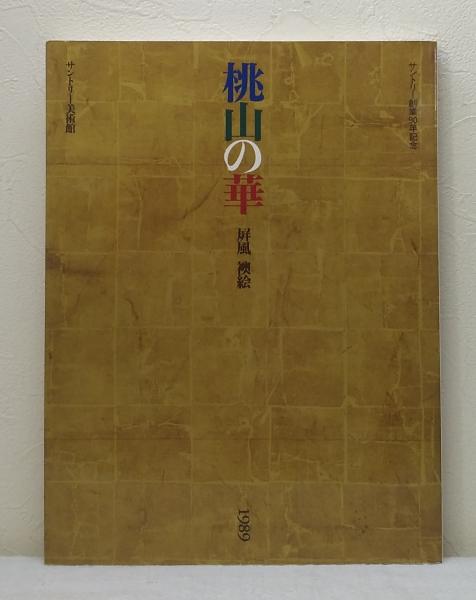 サントリー創業90年記念
桃山の華
屏風 襖絵
サントリー美術館
1989